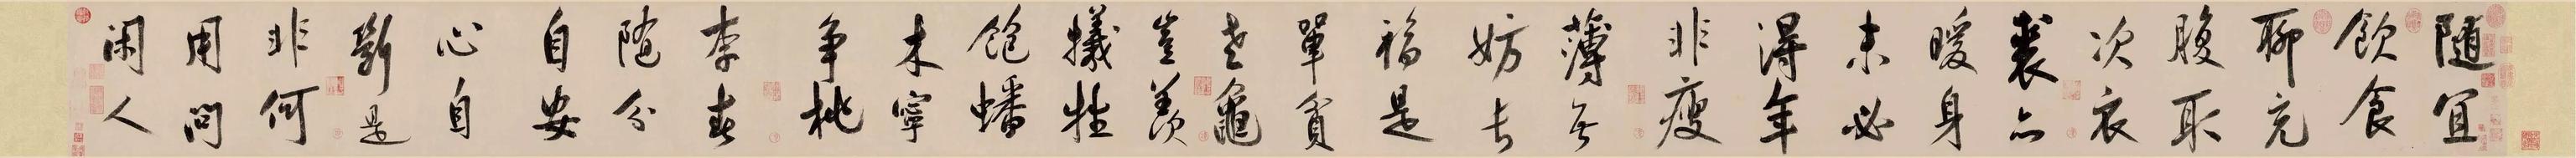 随宜
飲食
聊充
腹取
次衣
裘亦
暖身
未必
得年
非瘦
薄無
妨長
福是
單貧
老龜
豈羨
犧牲
飽蟠
木寧
争桃
李春
随分
自安
心自
斷是
非何
用問
闲人